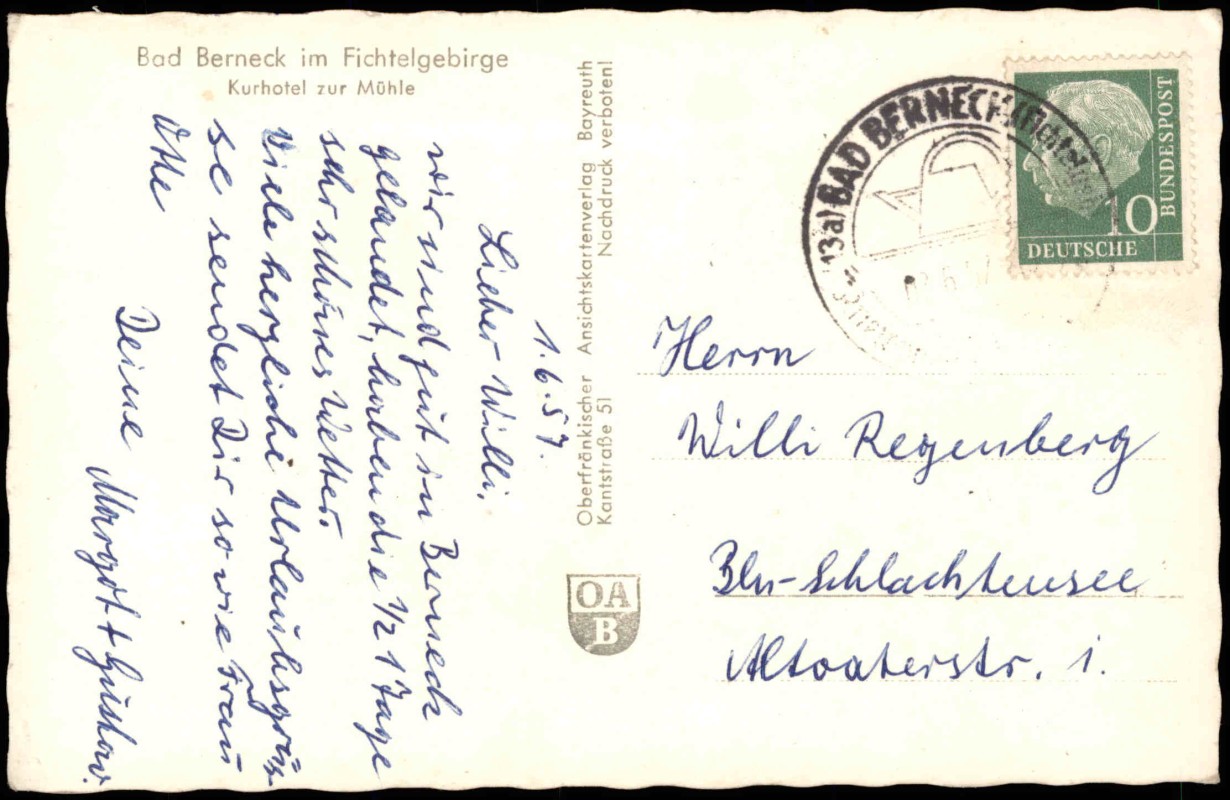 Bad Berneck im Fichtelgebirge
Kurhotel zur Mühle
1.6.57.
Lieber Willi,
wir sind gut in Berneck
gelandet, haben die 1/2 1 Tage
sehr schönes Wetter.
Viele herzliche Urlaubsgrüs
se sendet Dir sowie Frau
Otte
Deine
Margot + Gustav.
Oberfränkischer Ansichtskartenverlag Bayreuth
Kantstraße 51 Nachdruck verboten!
OA
B
(13a) BAD BERNECK (Fichtelgeb
10
DEUTSCHE
BUNDESPOST
Herrn
Willi Regenberg
Bln-Schlachtensee
Altvaterstr. 1.